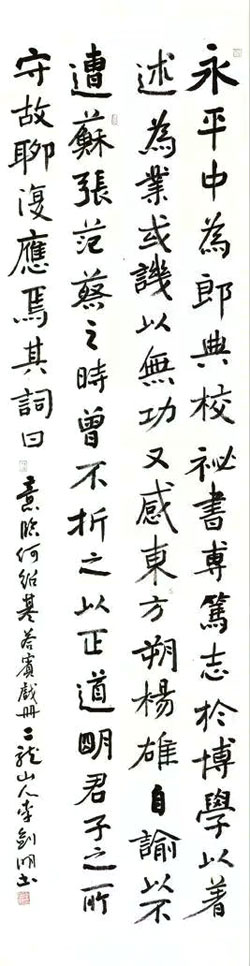 永平中為郎典校祕書專篤志於博學以著
述為業或譏以無功又感東方朔楊雄自諭以不
遭蘇張范蔡之時曾不折之以正道明君子之所
守故聊復應焉其詞曰
意臨何紹基荅賓戲冊二龍山人李劍明书